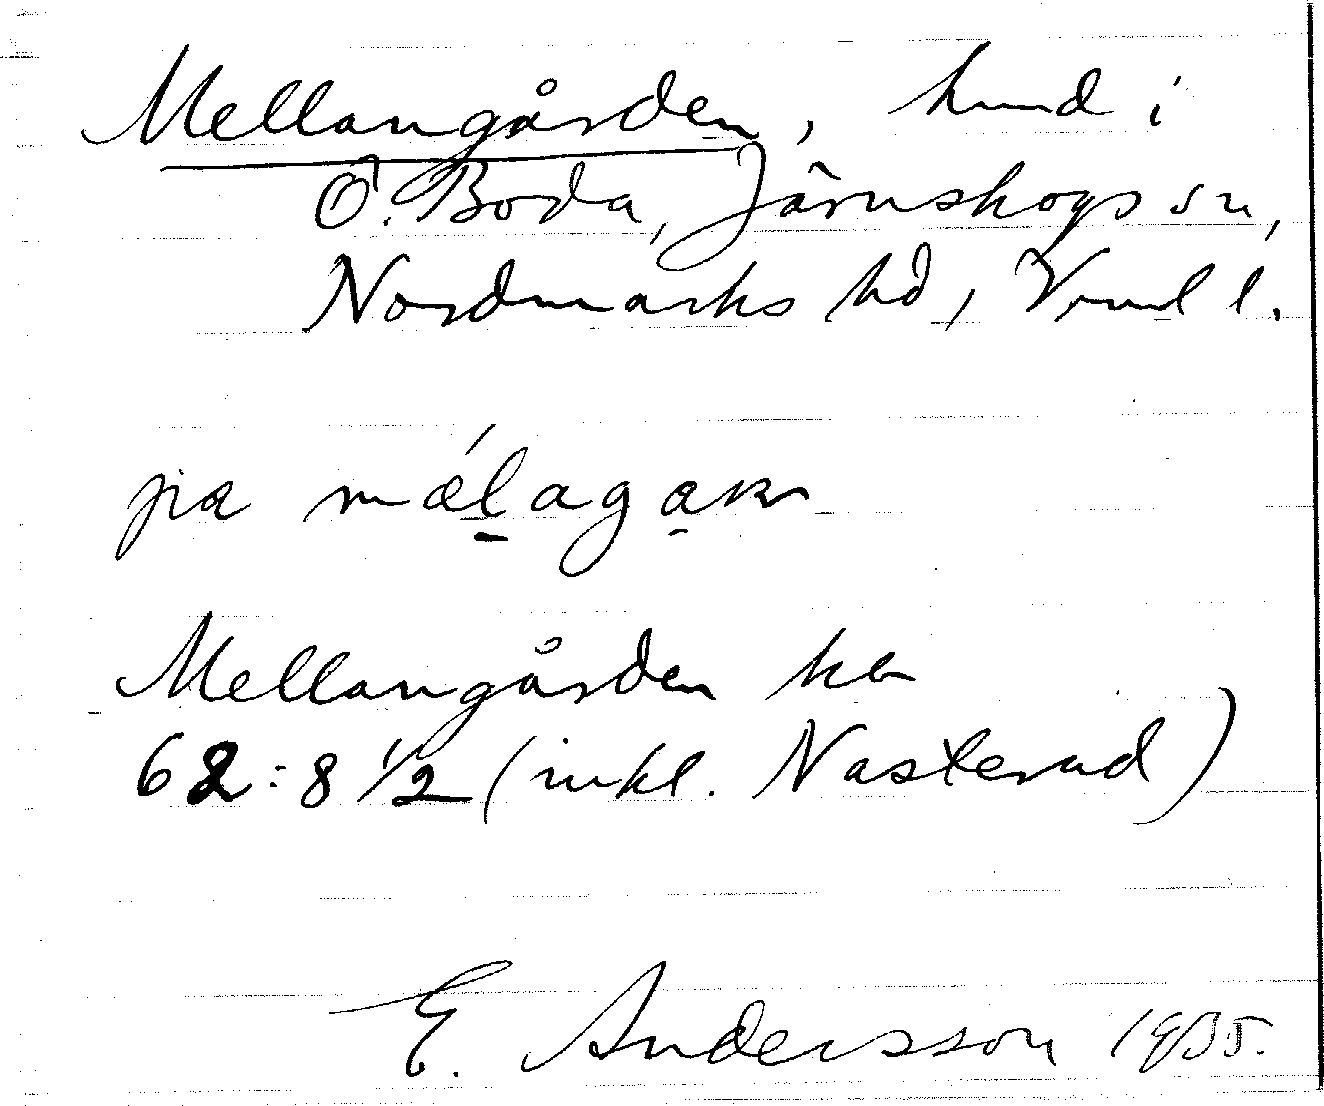 Mellangården, hmd i
Ö. Boda, Järnskogs sn,
Nordmarks hd, Vrml l.
pæ mǽlagaɳ
Mellangården har
62:8 1/2 (inkl. Nasterud)
E. Andersson 1935.